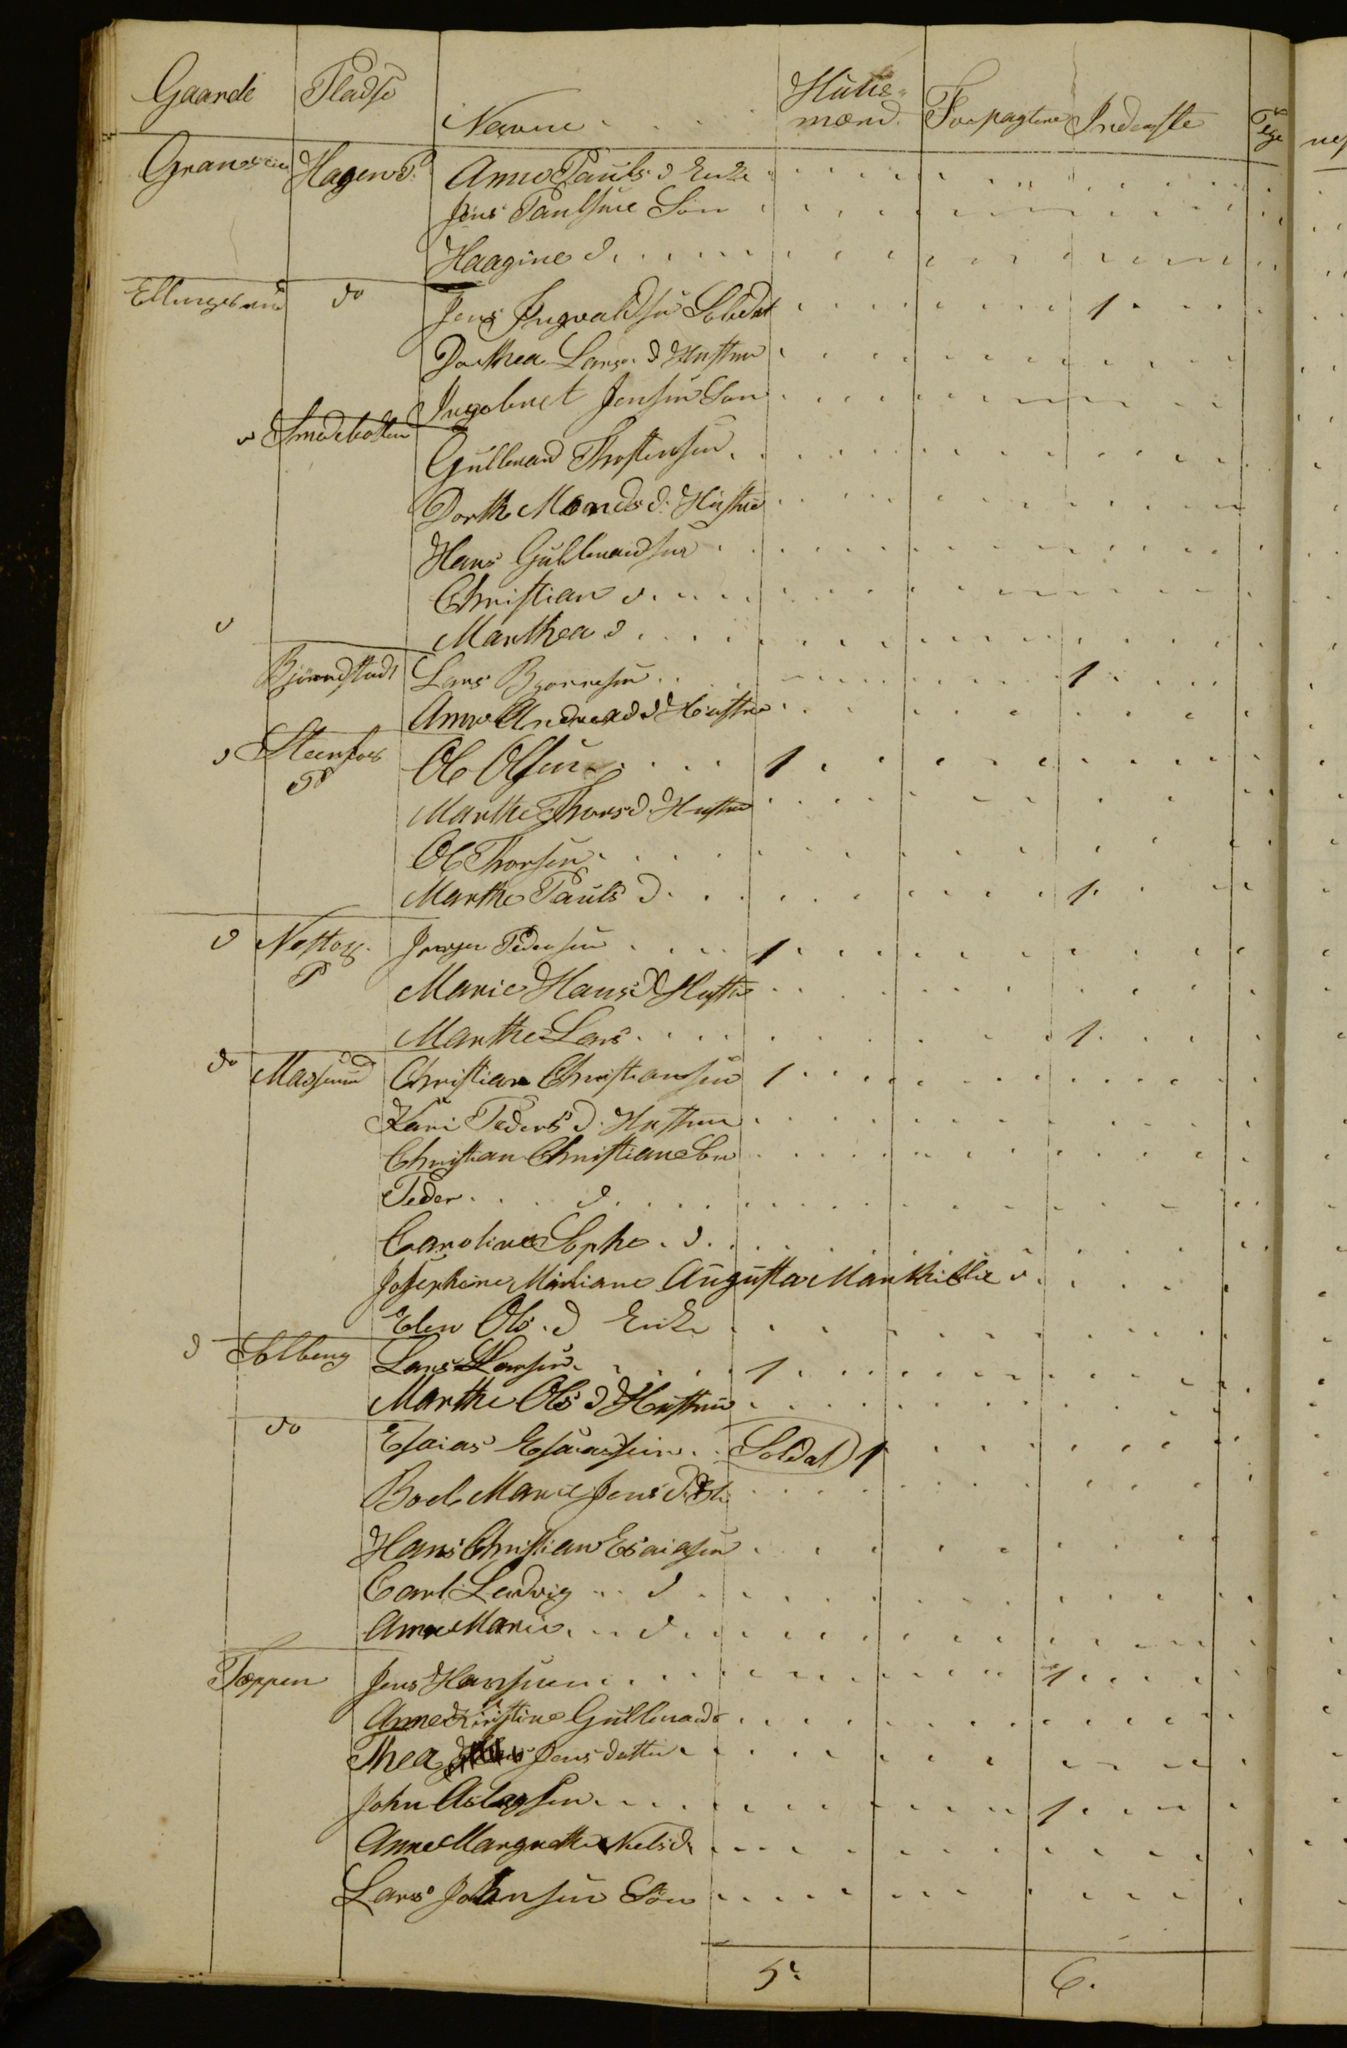 Gaarde Pladse Navne Huus= mænd. Forpagtere Inderste
Hagen P. Anne Pauls d Enke
Jens Paulsen Søn
Haagine d
Ellingsrud do Jens Ingvaldsen Soldat 1
Dorthea Lars d Hustrue
Ingebret Jensen Søn
d Smedbotten Gulbrand Thostensen
Dorthe d. Hustrue
Hans Gulbrandsen
Christian d
d Marthea d
Bjørndstad Lars Bjørnesen 1
Anne Andreas d Hustrue
d Steenfos P Ole Olsen 1
Marthe Thors d Hustrue
Ole Thorsen
Marthe Pauls d 1
d P Jørgen Pedersen 1
Marie Hans d Hustrue
Marthe Lars 1
do Christian Christiansen 1
Kari Peders d. Hustrue
Christian Christians Søn
Peder d
Caroline Sophe d
Josephine Mariane Augusta d
Elen Ols d Enke
d Solberg Lars Larsen 1
Marthe Ols d Hustrue
do Esaias Esaiassen Soldat 1
Boel Marie Jens d
Hans Christian Esaiasen
Carl Ludvig d
Anne Marie d
Toppen Jens Hansen 1
Anne Kirstine Gulbrands
Thea Jens datter
John Aslagsen 1
Anne Margrethe Niels d
Lars Johnsen Søn
5. 6.